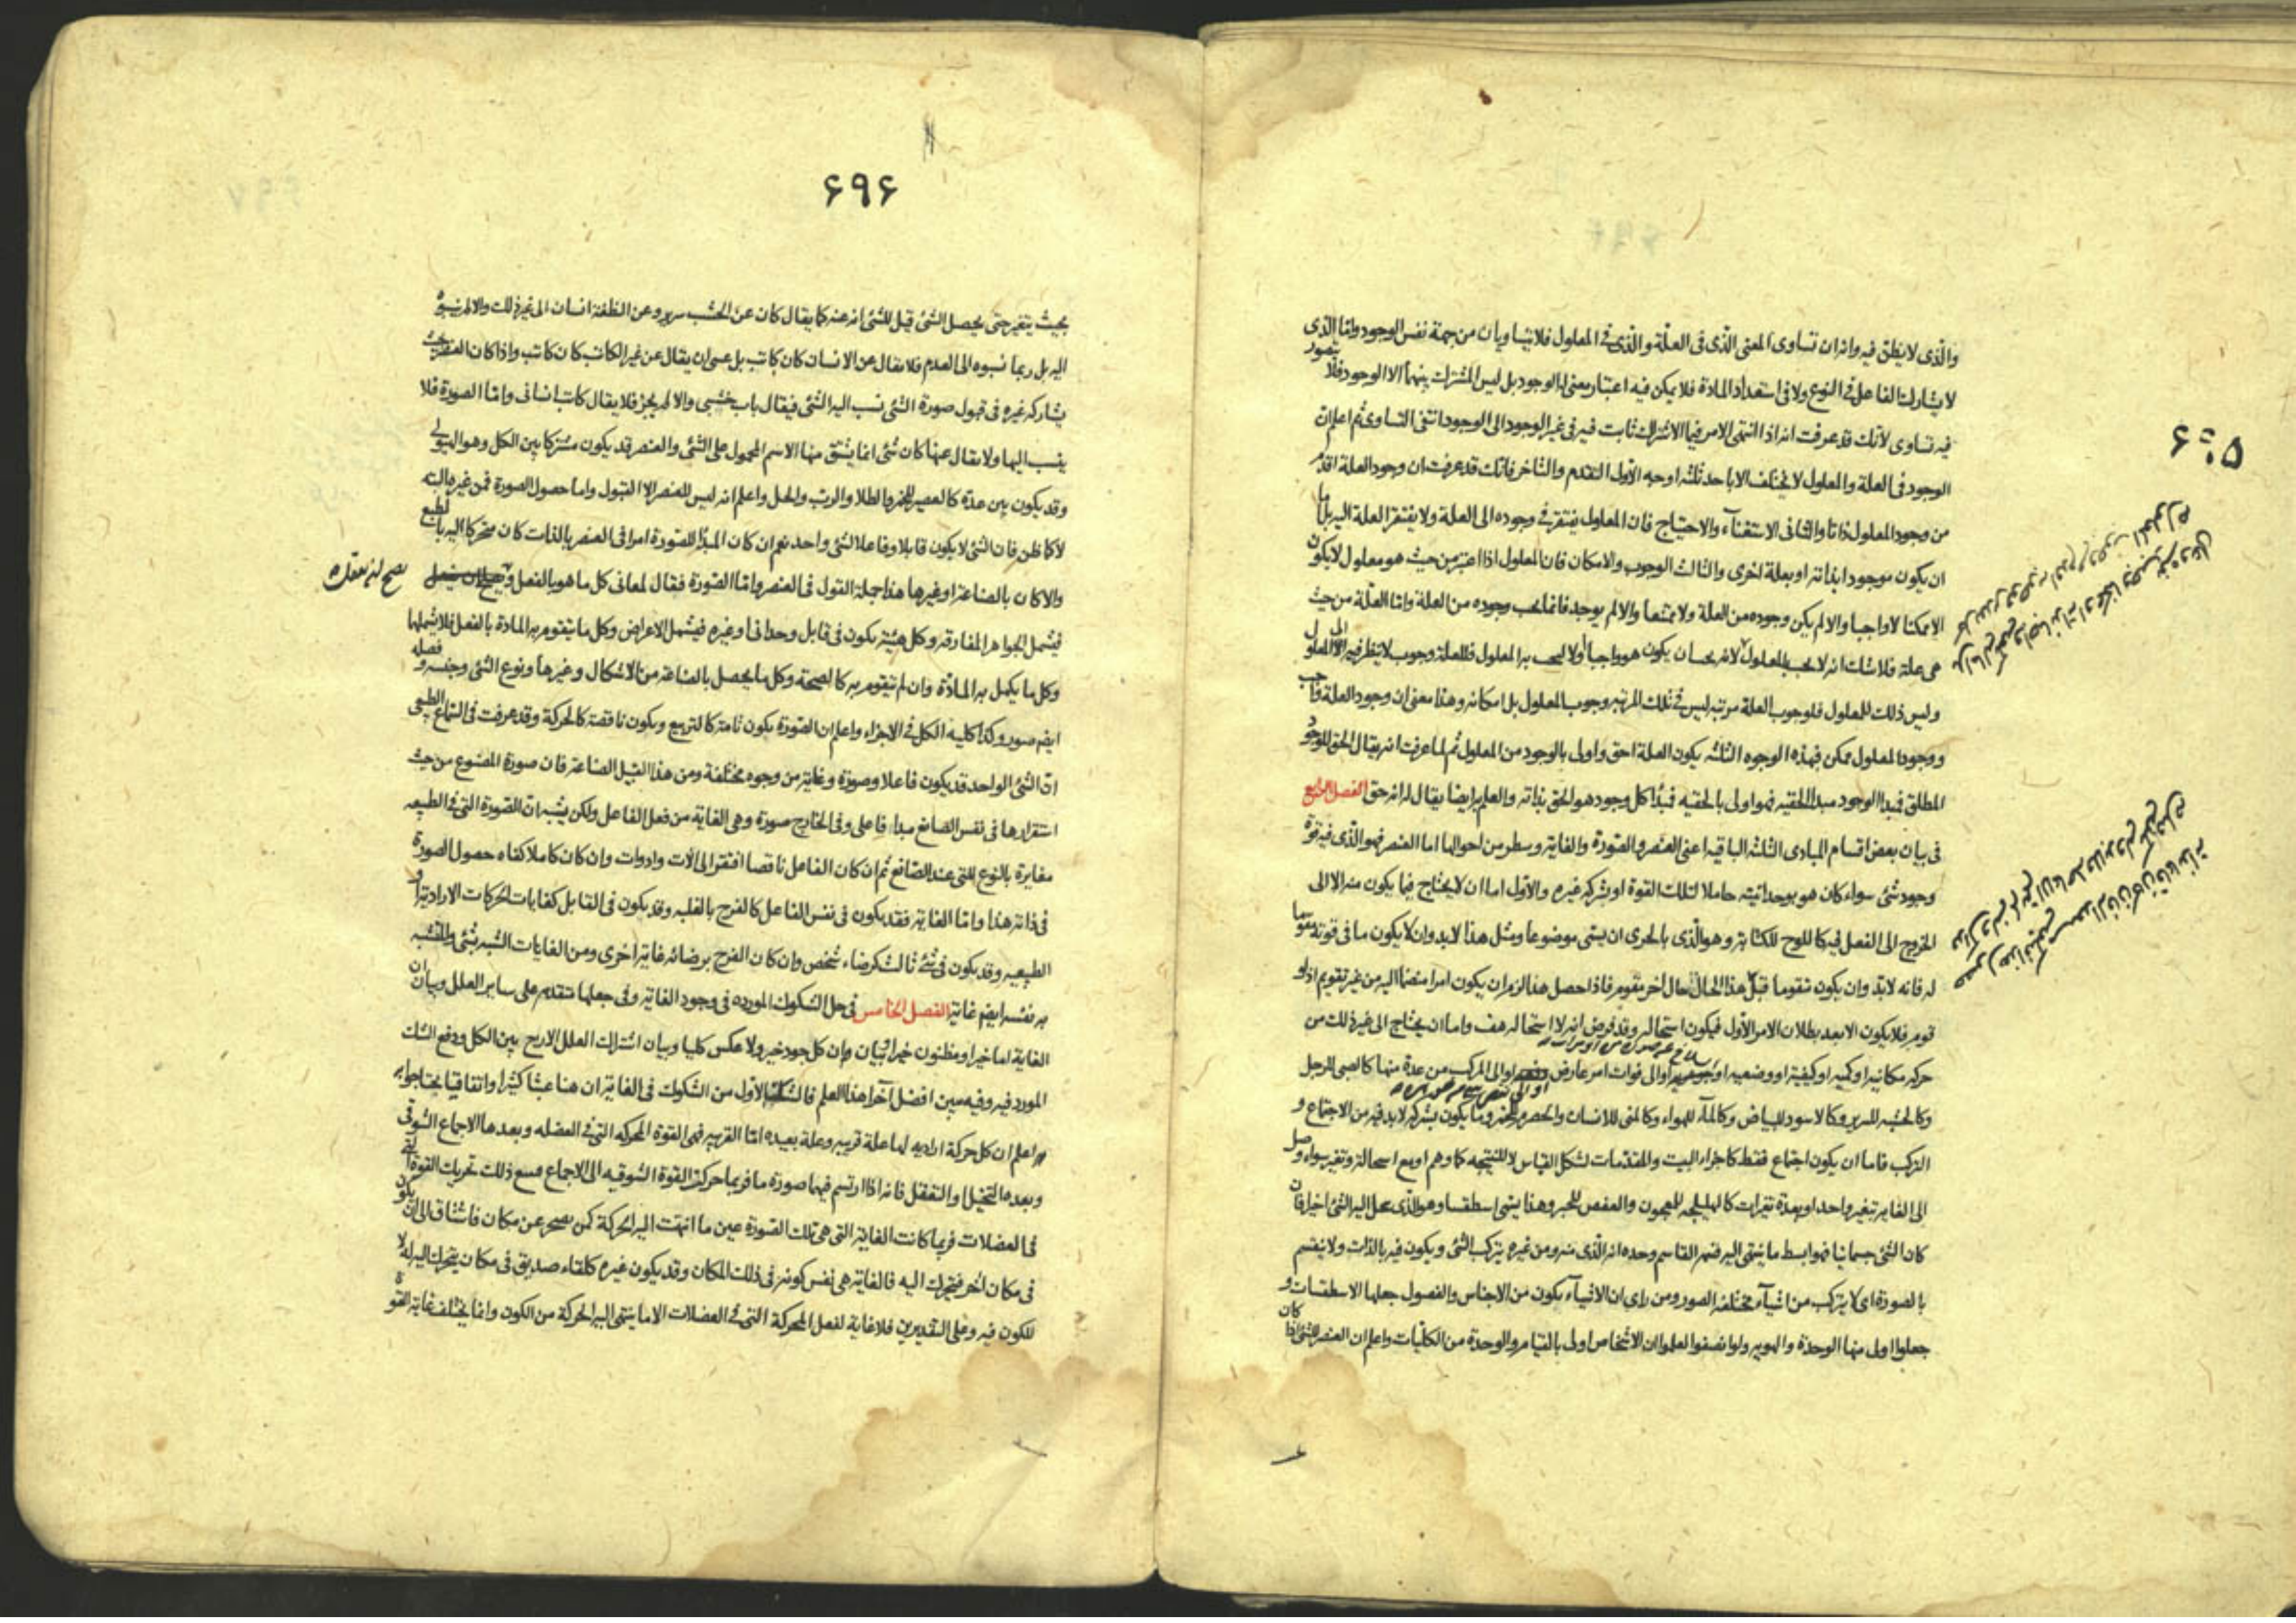 والذى لا يظن فيه وانه ان تساوى المعنى الذى فى العلة والذى فى المعلول فلا يتساويان من جهة نفس الوجود واما الذى
لا يشارك الفاعل فى النوع ولا فى استعداد المادة فلا يمكن فيه اعتبار معنى له الوجود بل ليس المشترك بينهما الا الوجود فلا يتصور
فيه تساوى لانك قد عرفت انه اذا انتهى الامر فيما الاشتراك ثابت فيه فى غير الوجود الى الوجود انتفى التساوى ثم اعلم ان
الوجود فى العلة والمعلول لا يختلف الا باحد ثلثه اوجه الاول التقدم والتاخر فانك قد عرفت ان وجود العلة اقدم
من وجود المعلول ذاتا والثانى الاستغناء والاحتياج فان المعلول يفتقر فى وجوده الى العلة ولا يفتقر العلة اليه بل اما
ان يكون موجودا بذاته او بعلة اخرى والثالث الوجوب والامكان فان المعلول اذا اعتبر من حيث هو معلول لا يكون
الا ممكنا لا واجبا والا لم يكن وجوده من العلة ولا ممتنعا والا لم يوجد فانما يجب وجوده من العلة واما العلة من حيث
هى علة فلا شك انه لا يجب بالمعلول لانه يجب ان يكون هو واجبا اولا ليجب به المعلول فللعلة وجوب لا ينظر فيه الى المعلول
وليس ذلك للمعلول فلوجوب العلة مرتبه ليس فى تلك المرتبه وجوب المعلول بل امكانه وهذا معنى ان وجود العلة واجب
ووجود المعلول ممكن فبهذه الوجوه الثلثه يكون العلة احق واولى بالوجود من المعلول ثم لما عرفت انه يقال الحق للموجود
المطلق فمبدا الوجود مبدا الحقيه فهو اولى بالحقيه فمبدا كل وجود هو الحق بذاته والعلم به ايضا يقال له انه حق الفصل الرابع
فى بيان بعض اقسام المبادى الثلثه الباقيه اعنى العنصر والصورة والغاية وسطر من احوالها اما العنصر فهو الذى فيه قوة
وجود شئ سواء كان هو بوحدانيته حاملا لتلك القوة او بشركه غيره والاول اما ان لا يحتاج فيما يكون منه الا الى
الخروج الى الفعل فيه كاللوح للكتابة وهو الذى بالحرى ان يسمى موضوعا ومثل هذا لا بد وان لا يكون ما فى قوته مقوما
له فانه لا بد وان يكون متقوما قبل هذا الحال بحال اخر مقوم فاذا حصل هذا لزم ان يكون امرا منضما اليه من غير تقويم اذ لو
قوم فلا يكون الا بعد بطلان الامر الاول فيكون استحاله وقد فرض انه لا استحاله هف واما ان يحتاج الى غير ذلك من
حركه مكانيه او كميه او كيفيته او وضعيه او جوهريه او الى فوات امر عارض او الى المركب من عدة منها كالصبى للرجل
وكالخشبه للسرير وكالاسود للبياض وكالماء للهواء وكالمنى للانسان والحصرم للخمر وما يكون بشركه لا بد فيه من الاجتماع و
التركب فاما ان يكون اجتماع فقط كاجزاء البيت والمقدمات لشكل القياس لا للنتيجه كما وهم او مع استحالة وتغير سواء وصل
الى الغايه بتغير واحد او بعدة تغيرات كالهليلجه للمعجون والعفص للحبر وهذا يسمى اسطقسا وهو الذى ينحل اليه الشئ اخيرا فان
كان الشئ جسمانيا فهو ابسط ما ينتهى اليه قسمه القاسم وحده انه الذى منه ومن غيره يتركب الشئ ويكون فيه بالذات ولا ينقسم
بالصورة اى لا يتركب من اشياء مختلفه الصور ومن راى ان الاشياء يكون من الاجناس والفصول جعلها الاسطقسات و
جعلوا اولى منها الوحدة والهويه ولو انصفوا لعلموا ان الاشخاص اولى بالقيام والوحدة من الكليات واعلم ان العنصر للشئ اذا كان
۶۹۶
بحيث يتغير حتى يحصل الشئ قيل للشئ انه عنه كما يقال كان عن الخشب سرير وعن النطفة انسان الى غير ذلك والا لم ينسبوه
اليه بل ربما نسبوه الى العدم فلا يقال عن الانسان كان كاتب بل عسى ان يقال عن غير الكاتب كان كاتب واذا كان العنصر بحيث
يشاركه غيره فى قبول صورة الشئ نسب اليه الشئ فيقال باب خشبى والا لم يجز فلا يقال كاتب انسانى واما الصورة فلا
ينسب اليها ولا يقال عنها كان شئ انما يشتق منها الاسم المحمول على الشئ والعنصر قد يكون مشتركا بين الكل وهو الهيولى
وقد يكون بين عدة كالعصير للخمر والطلا والرب والخل واعلم انه ليس للعنصر الا القبول واما حصول الصورة فمن غيره البته
لا كما ظن فان الشئ لا يكون قابلا وفاعلا لشئ واحد نعم ان كان المبدا للصورة امرا فى العنصر بالذات كان متحركا اليه بالطبع
والا كان بالصناعة او غيرها هذا جملة القول فى العنصر واما الصورة فقال لمعانى كل ما هو بالفعل و
يصح ان يعقل
فيشمل الجواهر المفارقه وكل هيئة يكون فى قابل وحدانى او غيره فيشمل الاعراض وكل ما يتقوم به المادة بالفعل فلا يشملها
وكل ما يكمل به المادة وان لم يتقوم به كالصحة وكل ما يحصل بالصناعة من الاشكال وغيرها ونوع الشئ وجنسه وفصله
ايضم صور وكذا كليه الكل فى الاجزاء واعلم ان الصورة يكون تامة كالتربيع ويكون ناقصة كالحركة وقد عرفت فى السماع الطبيعى
ان الشئ الواحد قد يكون فاعلا وصورة وغاية من وجوه مختلفة ومن هذا القبيل الصناعة فان صورة المصنوع من حيث
استقرارها فى نفس الصانع مبداء فاعلى وفى الخارج صورة وهى الغاية من فعل الفاعل ولكن يشبه ان الصورة التى فى الطبيعه
مغايرة بالنوع للتى عند الصانع ثم ان كان الفاعل ناقصا افتقر الى الات وادوات وان كان كاملا كفاه حصول الصورة
فى ذاته هذا واما الغاية فقد يكون فى نفس الفاعل كالفرح بالغلبه وقد يكون فى القابل كغايات الحركات الارادية او
الطبيعيه وقد يكون فى شئ ثالث كرضاء شخص وان كان الفرح برضائه غاية اخرى ومن الغايات التشبه بشئ والمتشبه
به نفسه ايضم غاية الفصل الخامس فى حل الشكوك المورده فى وجود الغاية وفى جعلها متقدمه على ساير العلل وبيان ان
الغاية اما خير او مظنون خيرا وبيان ان كل جود خير ولا عكس كليا وبيان اشتراك العلل الاربع بين الكل ودفع الشك
المورد فيه وفيه يبين افضل اجزاء هذا العلم فالشك الاول من الشكوك فى الغاية ان هنا عبثا كثيرا واتفاقيا يحتاج جوابه
اعلم ان كل حركة اراديه لها علة قريبه وعلة بعيده اما القريبه فهى القوة المحركه التى فى العضله وبعدها الاجماع الشوقى
وبعده التخيل والتعقل فانه اذا ارتسم فيهما صورة ما فربما حركت القوة الشوقيه الى الاجماع فسع ذلك تحريك القوة التى
فى العضلات فربما كانت الغاية التى هى تلك الصورة عين ما انتهت اليه الحركة كمن يضجر عن مكان فاشتاق الى ان يكون
فى مكان اخر فيتحرك اليه فالغاية هى نفس كونه فى ذلك المكان وقد يكون غيره كلقاء صديق فى مكان يتحرك اليه له لا
للكون فيه وعلى التقديرين فلا غاية لفعل المحركة التى فى العضلات الا ما ينتهى اليه الحركة من الكون وانما يختلف غاية القوة